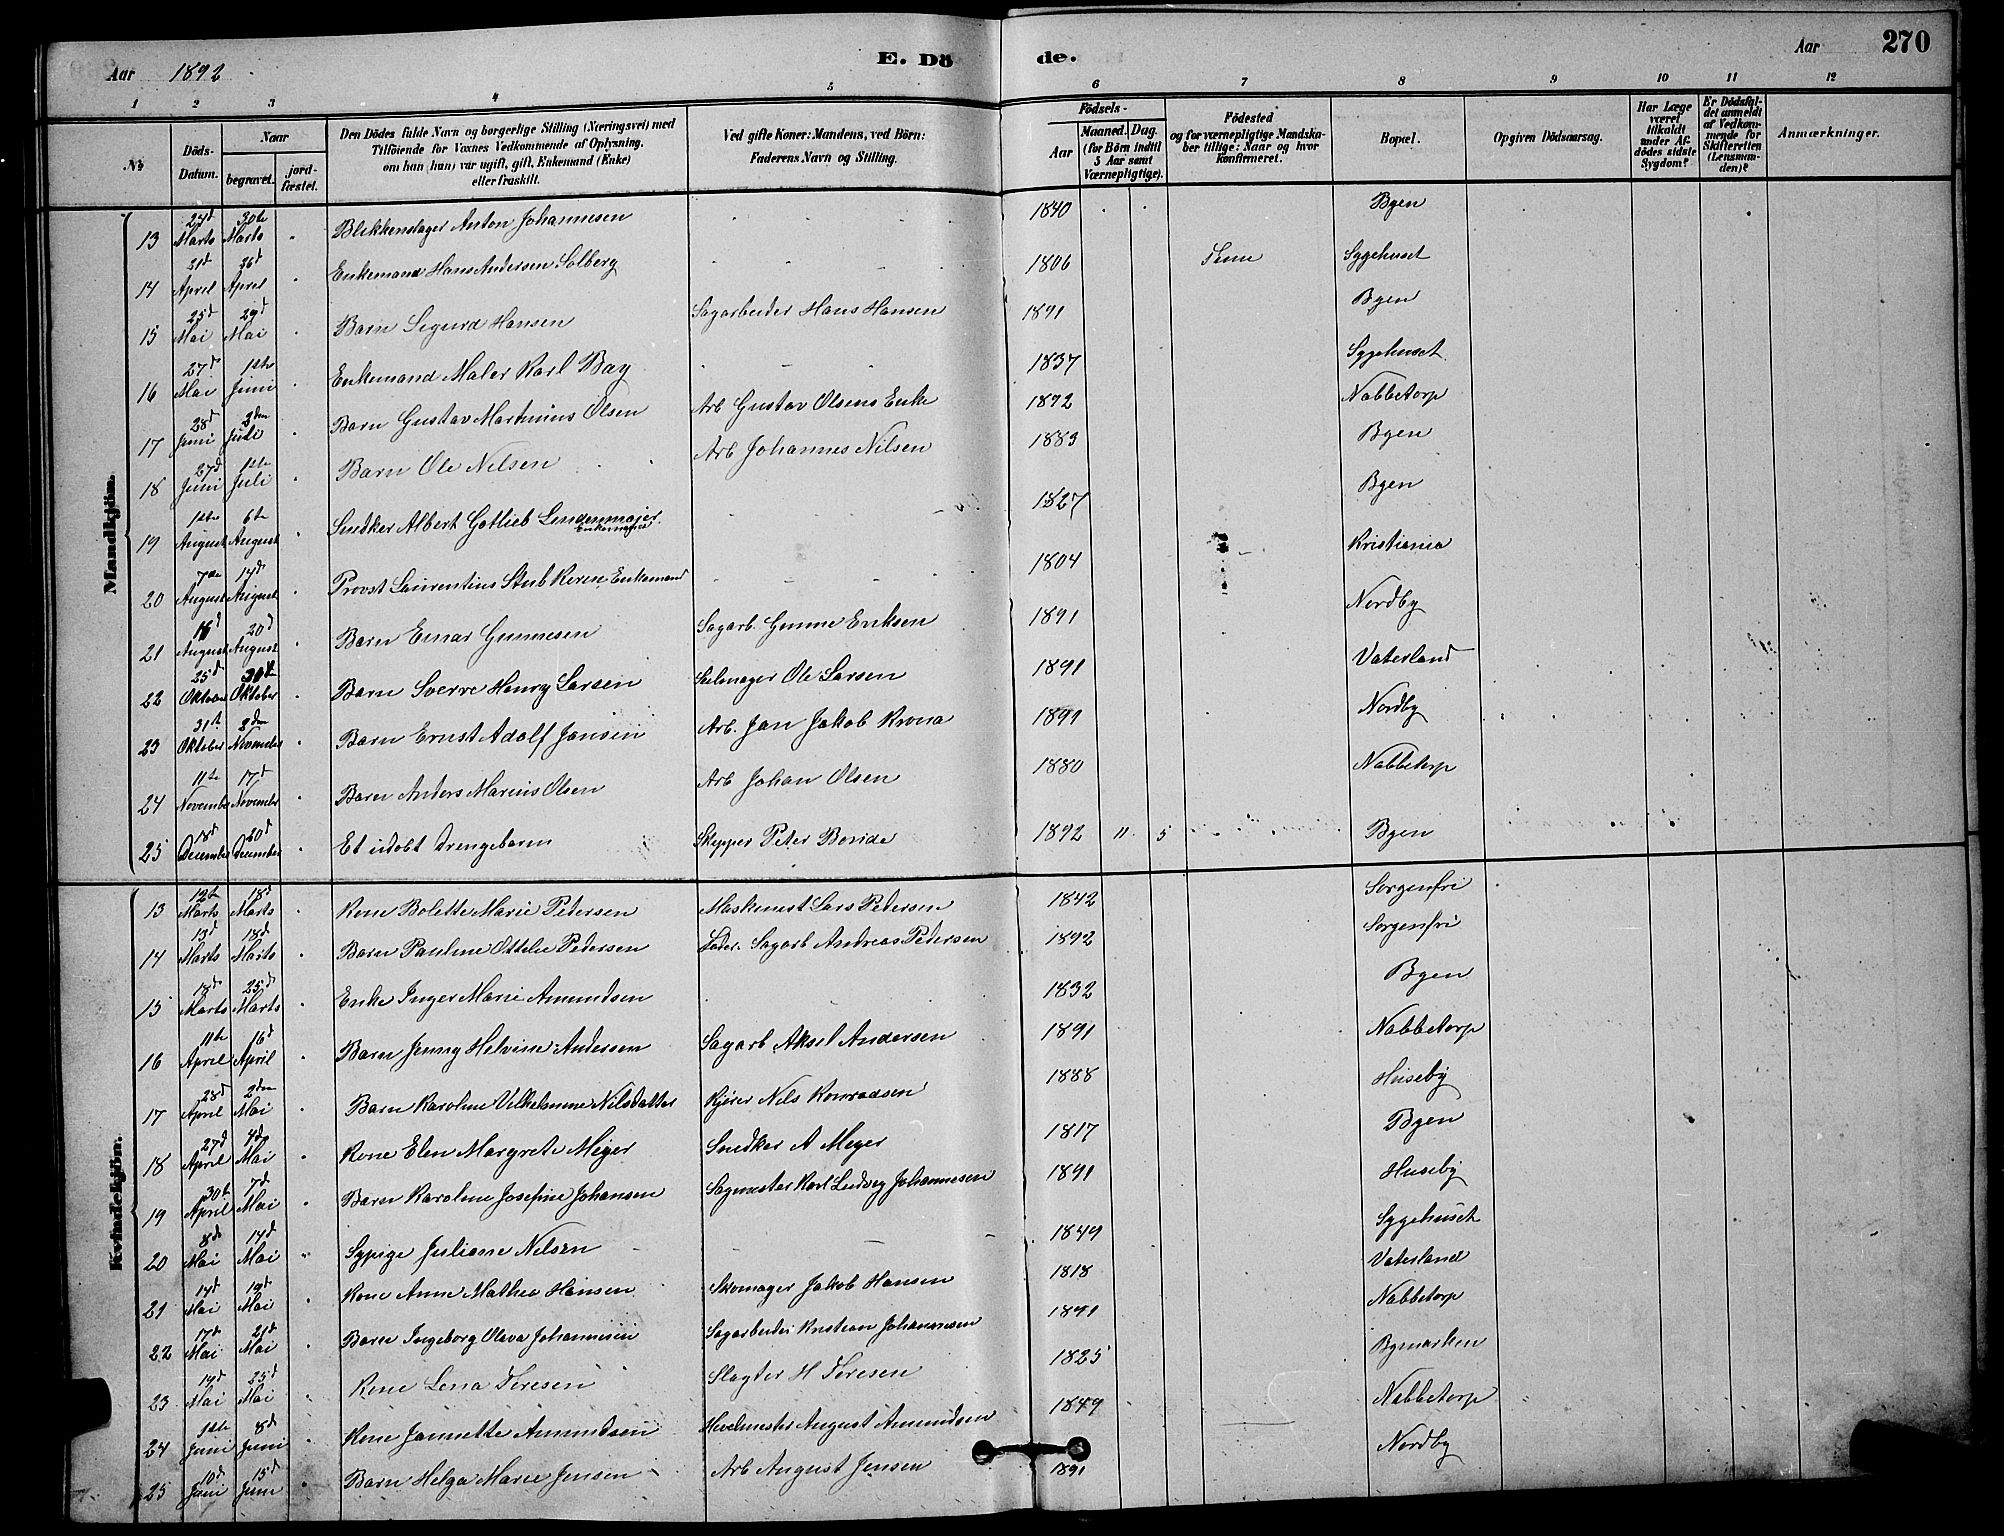 Aar 1892 E. Dö de. Aar 270
1 2 3 4 5 6 7 8 9 10 11 12
No.
Döds-Datum.
Naar
begravet.
jordfæstet.
Den Dödes fulde Navn og borgerlige Stilling (Næringsvei) med
Tilföiende for Voxnes Vedkommende af Oplysning,
om han (hun) var ugift, gift, Enkemand (Enke)
eller fraskilt.
Ved gifte Koner: Mandens, ved Börn:
Faderens Navn og Stilling.
Födsels-
Aar
Maaned. Dag.
(for Börn indtil
5 Aar samt
Værnepligtige).
Födested
og for værnepligtige Mandska-
ber tillige: Naar og hvor
Konfirmeret.
Bopæl.
Opgiven Dödsaarsag.
Har Læge
været
tilkaldt
under Af-
dödes sidste
Sygdom?
Er Dödsfal-
det anmeldt
af Vedkom-
mende for
Skifteretten
(Lensman-
den)?
Anmærkninger.
Mandkjön.
13 24d Marts 30te Marts Blikkenslager Anton Johannesen 1840 Byen
14 21d April 26d April Enkemand Hans Andersen Solberg 1806 Sygehuset
15 25d Mai 29d Mai Barn Sigurd Hansen Sagarbeider Hans Hansen 1891 Byen
16 27d Mai 1ste Juni Enkemand Maler Karl Bay 1837 Sygehuset
17 28d Juni 2den Juli Barn Gustav Martinius Olsen Arb Gustav Olsens Enke 1892 Nabbetorp
18 27d Juni 1ste Juli Barn Ole Nilsen Arb Johannes Nilsen 1883 Byen
19 1ste August 6te August Snedker Albert Gotlieb Lindenmajer Enkemand 1827 Byen
20 7de August 14d August Provst Laurentius Stub Koren Enkemand 1804 Kristiania
21 16d August 20d August Barn Einar Gunnesen Sagarb. Gunne Eriksen 1891 Nordby
22 25d Oktober 30te Oktober Barn Sverre Henry Larsen Seilmager Ole Larsen 1891 Vaterland
23 31te Oktober 2den November Barn Ernst Adolf Jansen Arb. Jan Jakob Krona 1891 Nordby
24 11te November 17d November Barn Anders Marius Olsen Arb Johan Olsen 1880 Nabbetorp
25 18d December 20d December Et udöbt Drengebarn Skipper Peter 1892 11 5 Byen
Kvindekjön.
13 12te Marts 18d Marts Kone Bolette Marie Petersen Maskinist Lars Petersen 1842 Sorgenfri
14 13d Marts 18d Marts Barn Pauline Ottelie Pedersen Fader. Sagarb Andreas Pedersen 1892 Sorgenfri
15 18d Marts 25d Marts Enke Inger Marie Amundsen 1832 Byen
16 11te April 16d April Barn Jenny Helvine Andersen Sagarb Aksel Andersen 1891 Nabbetorp
17 28d April 2den Mai Barn Karoline Vilhelmine Nilsdatter Kjörer Nils Konradsen 1888 Huseby
18 27d April 4de Mai Kone Elen Margrete Meyer Snedker A Meyer 1817 Byen
19 30te April 7d Mai Barn Karoline Josefine Johansen Sagmester Karl Ludvig Johannesen 1891 Huseby
20 8de Mai 14d Mai Sypige Juliane Nilsen 1849 Sygehuset
21 14d Mai 19d Mai Kone Anne Mathea Hansen Skomager Jakob Hansen 1818 Vaterland
22 17de Mai 21d Mai Barn Ingeborg Olava Johannesen Sagarbeider Kristian Johannesen 1891 Nabbetorp
23 19d Mai 25d Mai Kone Lena Toresen Slagter H Toresen 1825 Bymarken
24 1ste Juni 8de Juni Kone Jannette Amundsen Hövelmester August Amundsen 1849 Nabbetorp
25 10d Juni 15d Juni Barn Helga Marie Jensen Arb August Jensen 1891 Nordby